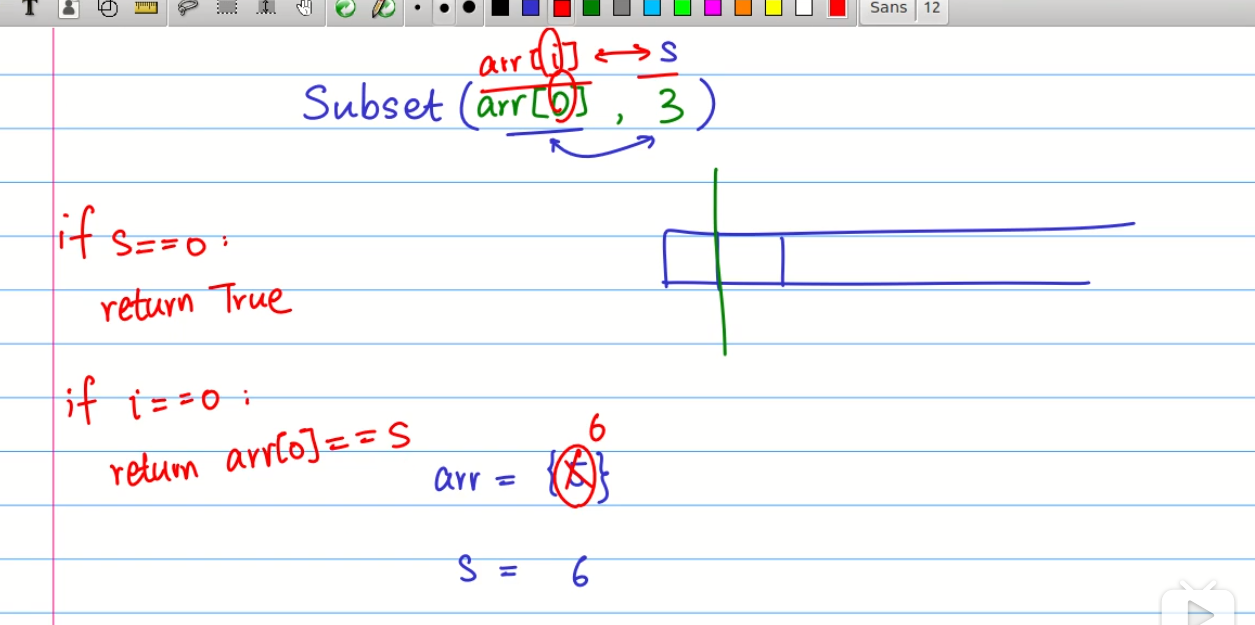 T
Sans 12
arr[i] ↔ s
Subset (arr[0], 3)
if s==0:
return True
if i==0:
return arr[0]==s
6
arr = {5}
s = 6